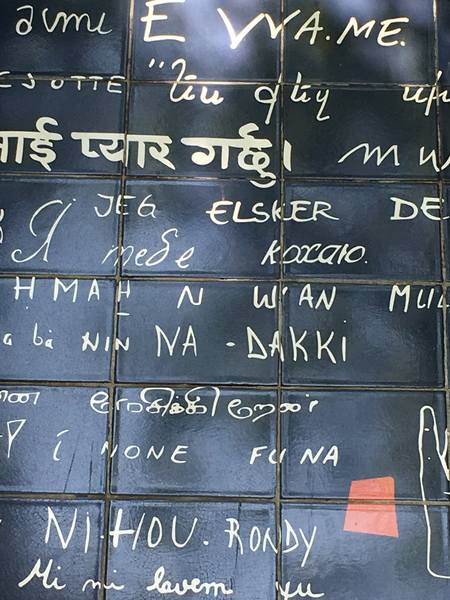 E VVA.ME.
CJOTTE
ाई प्यार गर्छु। MW
JEG ELSKER DE
Я тебе кохаю.
HMAH N WAN MUL
a bà NIN NA - DAKKI
Í NONE FU NA
NI.HOU. RONDY
Mi mi lavem yu